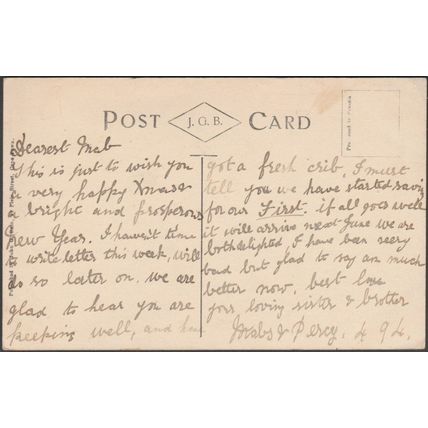 POST J. G. B. CARD
Dearest Mab
This is just to wish you
a very happy Xmas &
a bright and prosperous
new Year. I havent time
to write letter this week, will
do so later on. we are
glad to hear you are
keeping well, and
got a fresh crib, I must
tell you we have started saving
for our First. if all goes well
it will arrive next June we are
both delighted, I have been very
bad but glad to say am much
better now, best love
your loving sister & brother
& Percy. 4 9 4.